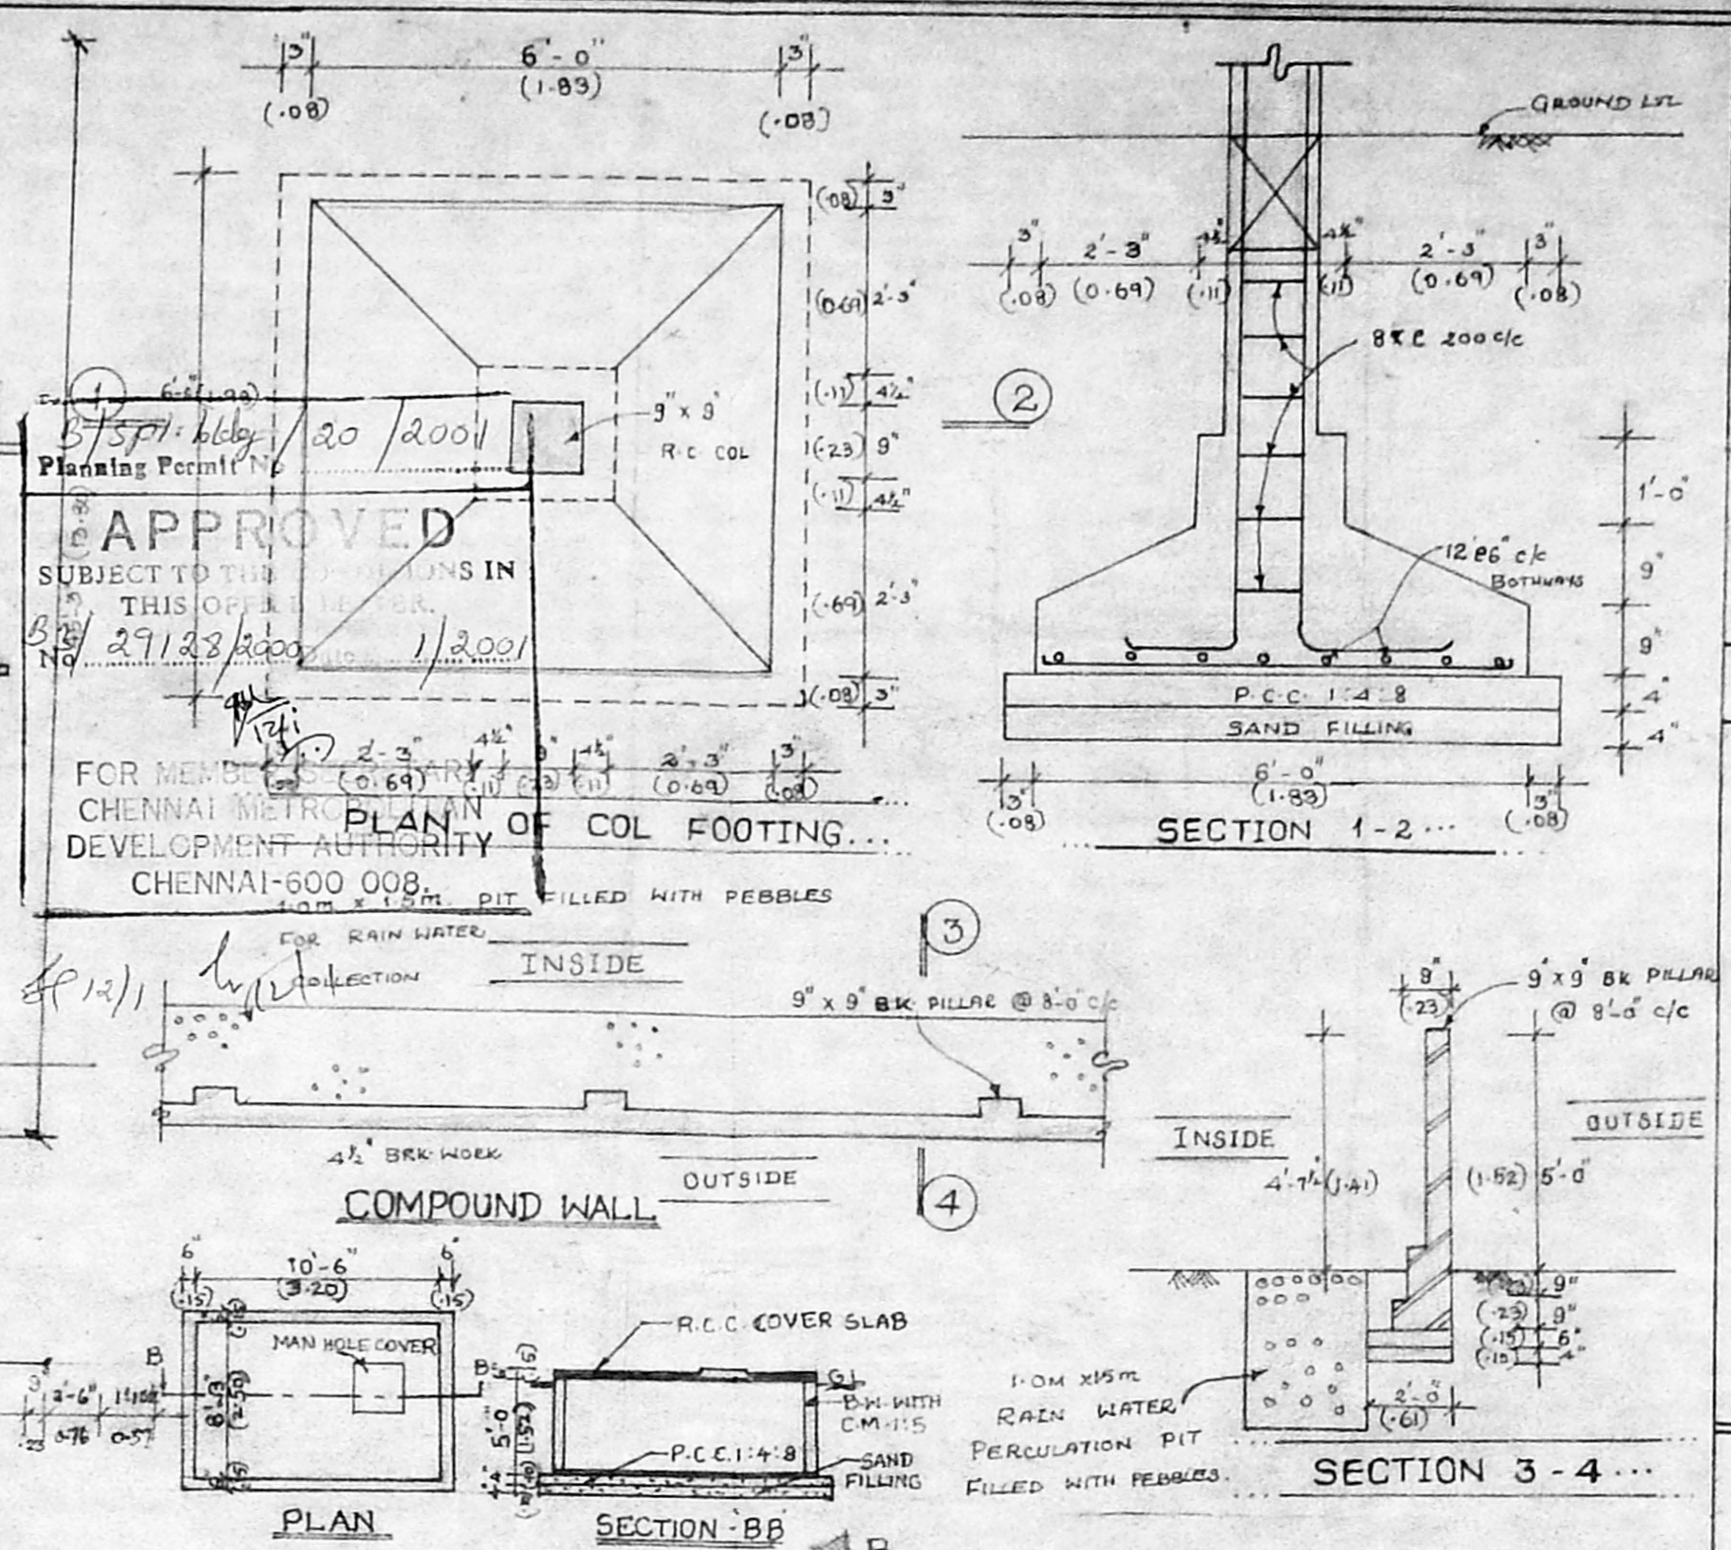 3"
6'-0"
3"
(.08)
(1.83)
(.08)
(.08) 3"
(0.69) 2'-3"
(.11) 4½"
(.23) 9"
(.11) 4½"
(.69) 2'-3"
(.08) 3"
9" x 9"
R.C. COL
1
B/Spl. bldg/20/2001
Planning Permit No
APPROVED
SUBJECT TO THE CONDITIONS IN
THIS OFFICE LETTER.
No 29128/2000 1/2001
12/1
FOR MEMBER SECRETARY
CHENNAI METROPOLITAN
DEVELOPMENT AUTHORITY
CHENNAI-600 008.
2'-3" 4½" 9" 4½" 2'-3" 3"
(0.69) (.11) (.23) (.11) (0.69) (.08)
PLAN OF COL FOOTING...
GROUND LVL
3" 2'-3" 4½" 4½" 2'-3" 3"
(.08) (0.69) (.11) (.11) (0.69) (.08)
2
200 c/c
12 @ 6" c/c
BOTHWAYS
1'-0"
9"
9"
4"
4"
P.C.C. 1:4:8
SAND FILLING
3" 6'-0" 3"
(.08) (1.83) (.08)
SECTION 1-2...
1.0m x 1.5m. PIT FILLED WITH PEBBLES
FOR RAIN WATER
COLLECTION
INSIDE
3
12/1
9" x 9" BK PILLAR @ 8'-0" c/c
4½" BRK WORK
OUTSIDE
4
COMPOUND WALL
9"
(.23)
9" x 9" BK PILLAR
@ 8'-0" c/c
INSIDE
OUTSIDE
4'-7½" (1.41)
(1.52) 5'-0"
9"
(.23) 9"
(.15) 6"
(.10) 4"
2'-0"
(.61)
1.0M x 1.5m
RAIN WATER
PERCULATION PIT
FILLED WITH PEBBLES.
SECTION 3-4...
6" 10'-6" 6"
(.15) (3.20) (.15)
MAN HOLE COVER
B
B
8'-3"
(2.50)
2'-6"
.23 0.76 0.57
PLAN
R.C.C. COVER SLAB
G.L
B.W. WITH
C.M. 1:5
5'-0"
(1.52)
P.C.C. 1:4:8
SAND
FILLING
SECTION 'BB'